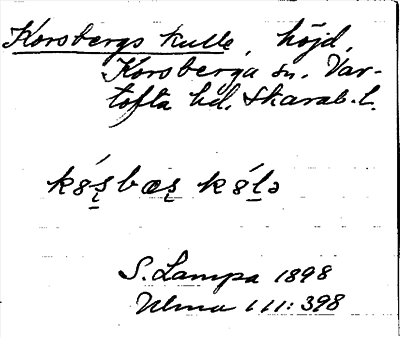 Korsbergs kulle, höjd,
Korsberga sn. Var-
tofta hd. Skarab. l.
S. Lampa 1898
Ulma 111: 398